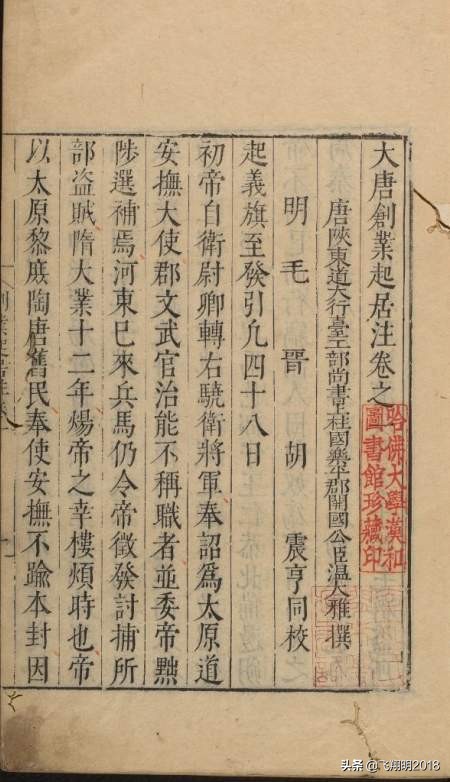 大唐創業起居注卷之一
唐陝東道大行臺工部尚書上柱國樂平郡開國公臣溫大雅撰
明毛晉胡震亨同校
起義旗至發引凢四十八日
初帝自衛尉卿轉右驍衛將軍奉詔爲太原道
安撫大使郡文武官治能不稱職者並委帝黜
陟選補焉河東已來兵馬仍令帝徵發討捕所
部盜賊隋大業十二年煬帝之幸樓煩時也帝
以太原黎庶陶唐舊民奉使安撫不踰本封因
哈佛大學漢和
圖書館珍藏印
头条 @飞翔明2018